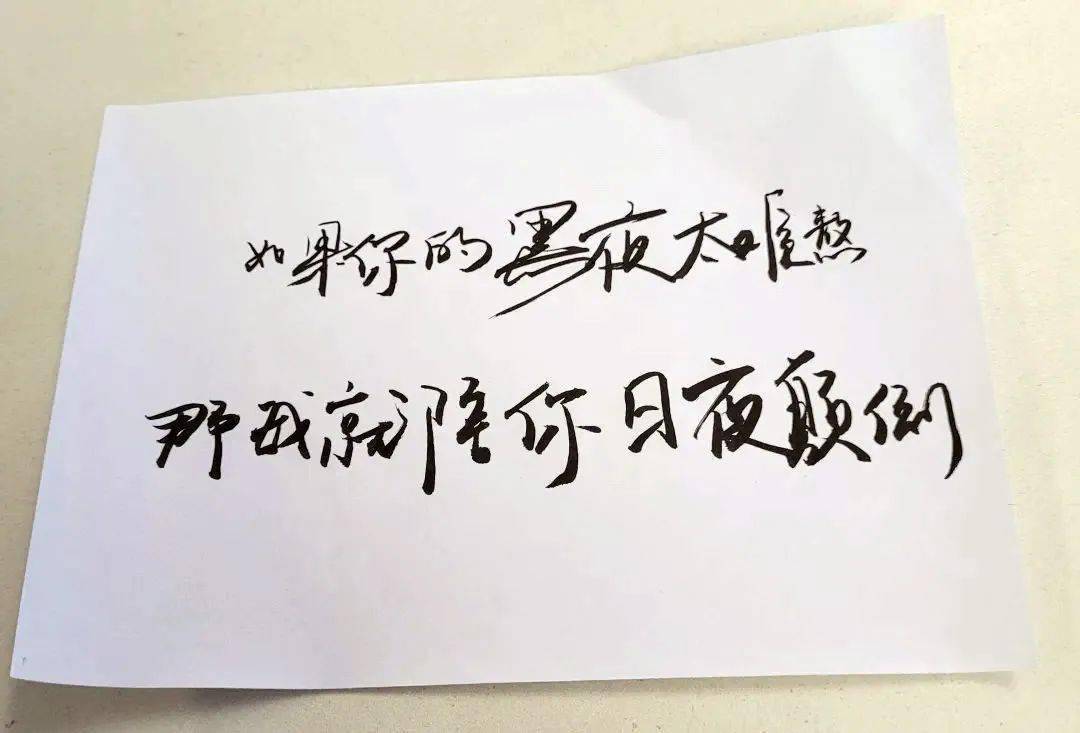 如果你的黑夜太难熬
那我就陪你日夜颠倒